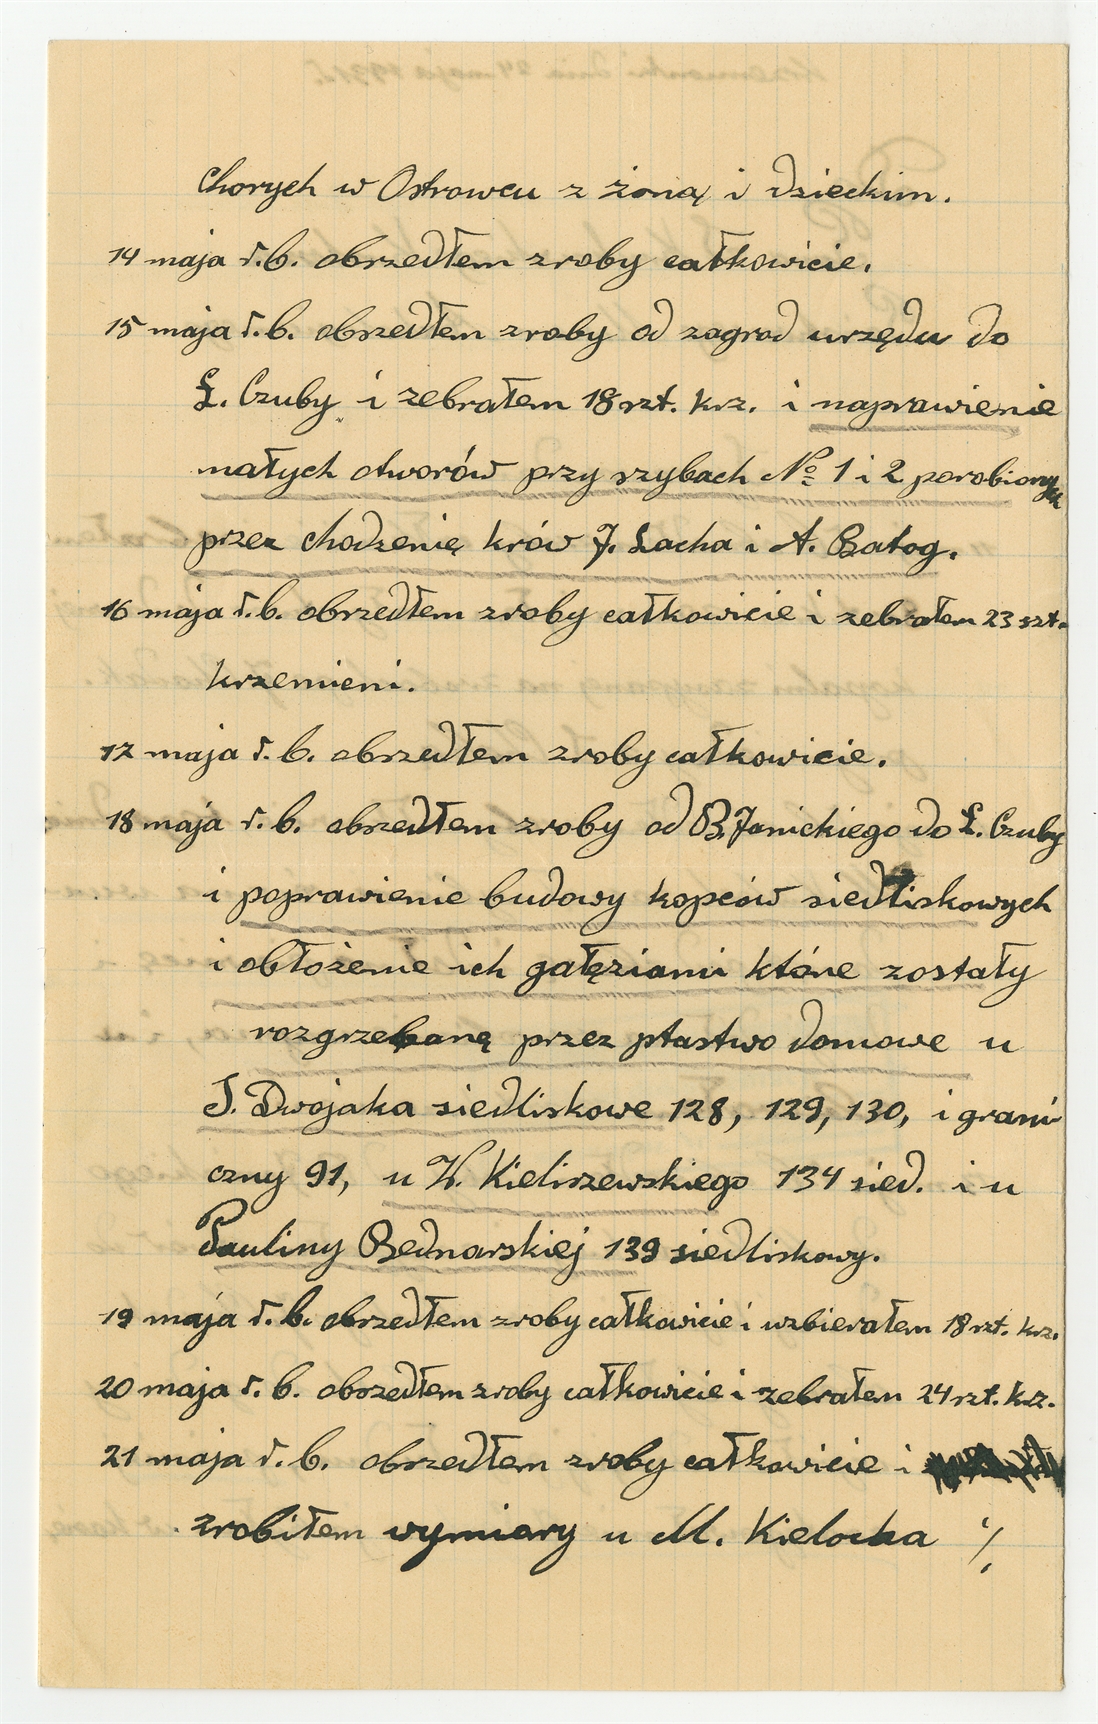 chorych w Ostrowcu z żoną i dzieckim.
14 maja r.b. obrzedłem zroby całkowicie.
15 maja r.b. obszedłem zroby od zagrod urzędu do
Ł. Czuby i zebrałem 18 szt. krz. i naprawienie
małych otworów przy szybach № 1 i 2 porobionych
przez chodzenię krów J. Lacha i A. Batog.
16 maja r.b. obrzedłem zroby całkowicie i zebrałem 23 szt.
krzemieni.
17 maja r.b. obszedłem zroby całkowicie.
18 maja r.b. obszedłem zroby od B. Janickiego do Ł. Czuby
i poprawienie budowy kopców siedliskowych
i obłożenie ich gałęziami które zostały
rozgrzebanę przez ptastwo domowe u
J. Dwojaka siedliskowe 128, 129, 130, i grani
czny 91, u W. Kieliszewskiego 134 sied. i u
Pauliny Bednarskiej 139 siedliskowy.
19 maja r.b. obszedłem zroby całkowicie i uzbierałem 18 szt. krz.
20 maja r.b. obszedłem zroby całkowicie i zebrałem 24 szt. krz.
21 maja r.b. obszedłem zroby całkowicie i
zrobiłem wymiary u M. Kielocha ·/.